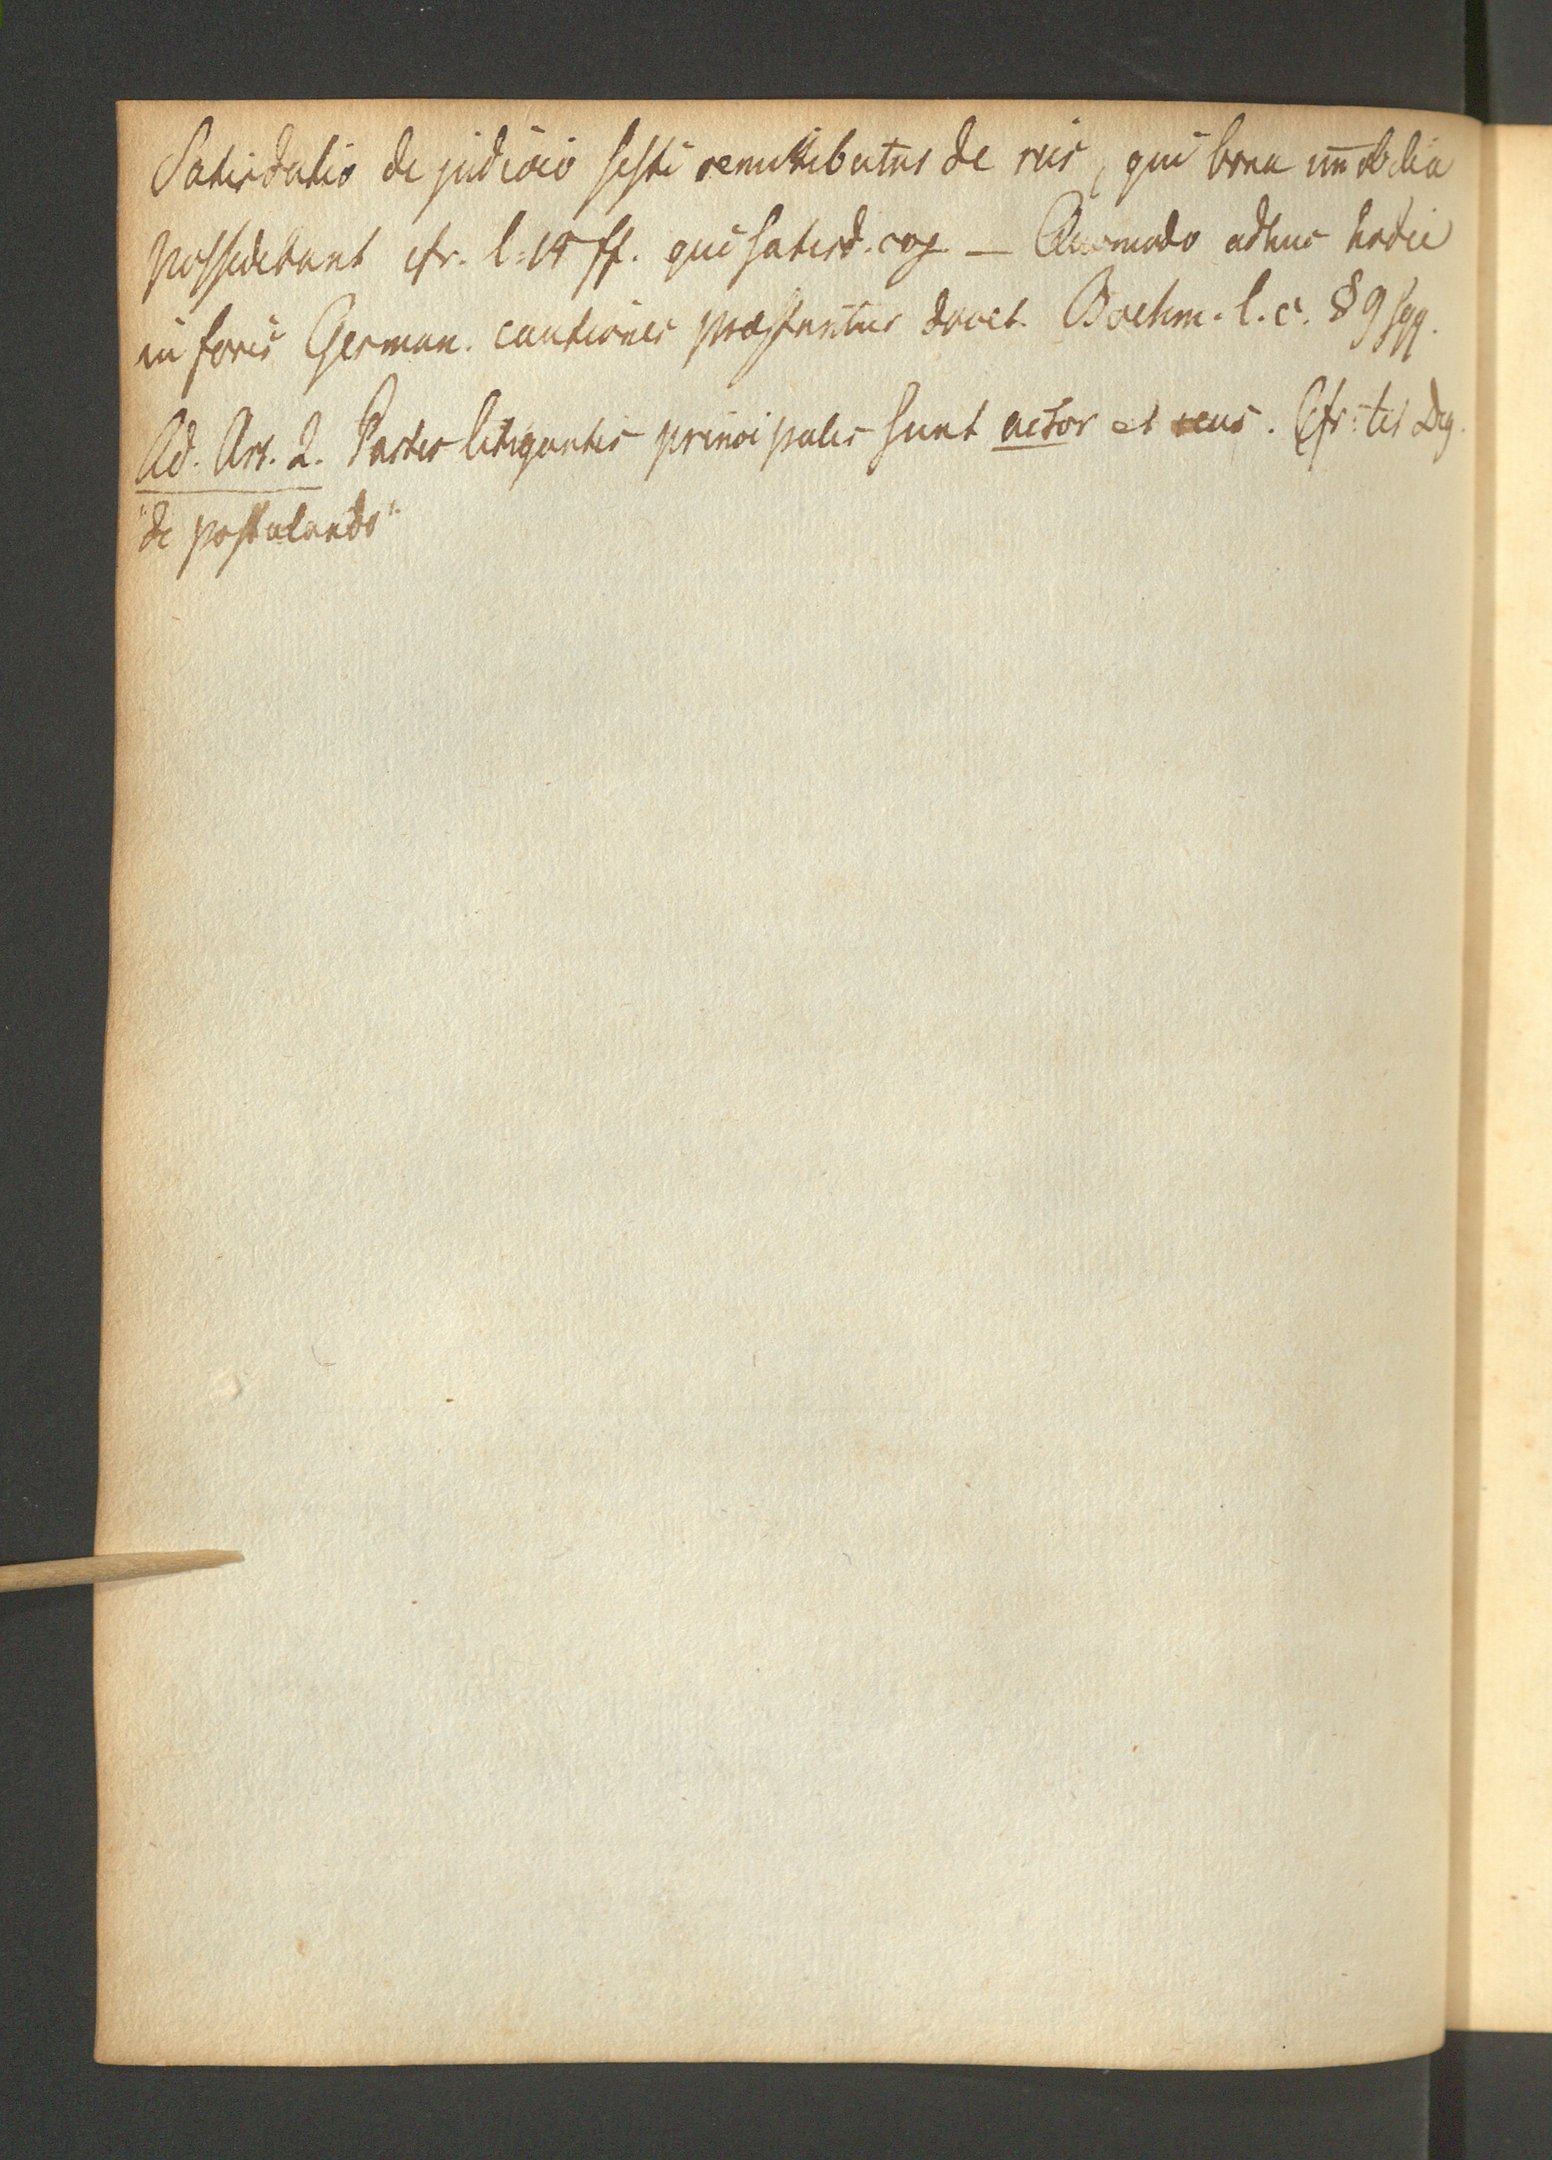 Satisdatio de judicio sisti remittebatur de reis, qui bona im̄obilia
possidebant cfr. l. 15 ff. qui satisd. cog — Quomodo adhuc hodie
in foris German. cautiones praestantur docet Boehm. l. c. § 9 sqq.
Ad. Art. 2. Partes litigantes principales sunt actor et reus. Cfr: tit Dig.
"de postulando"